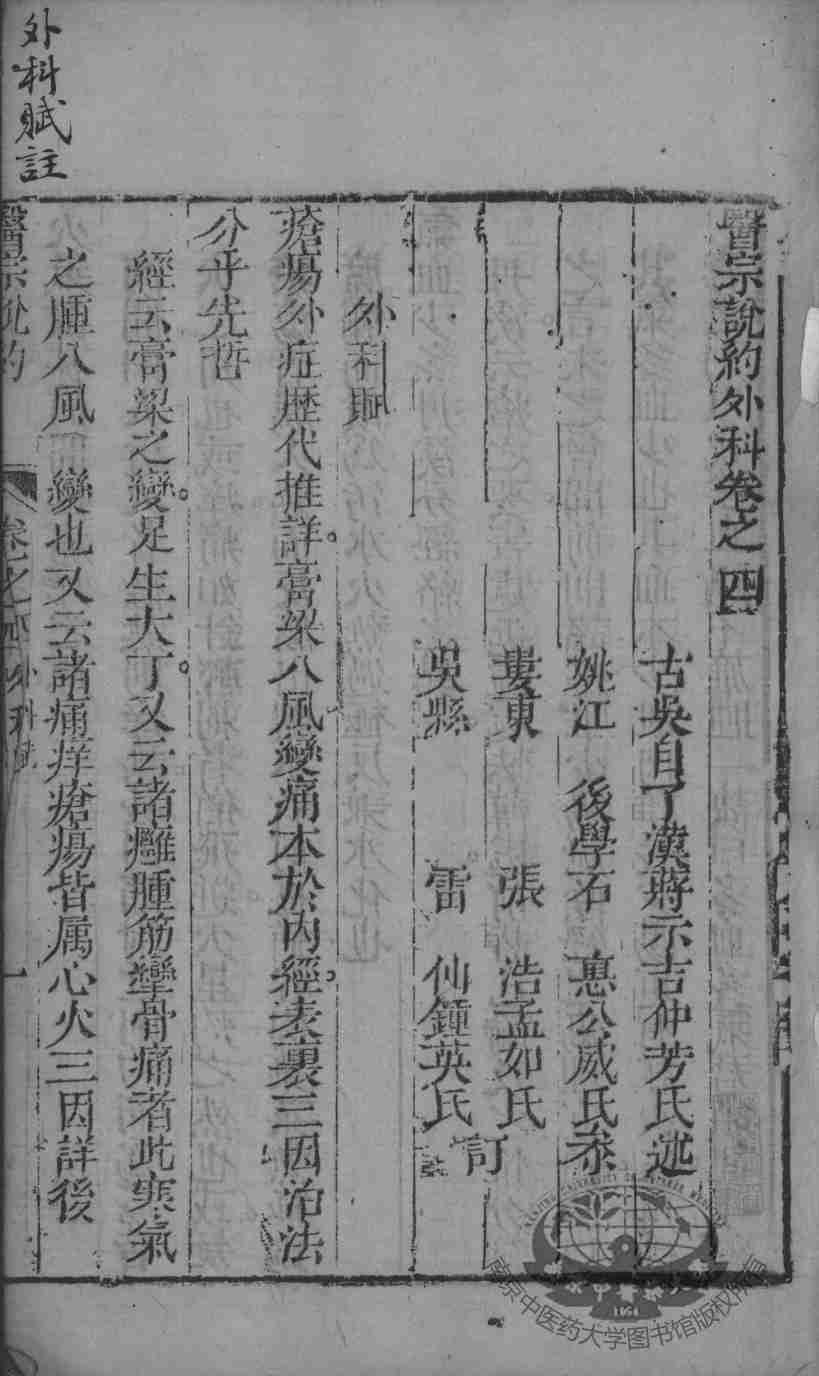 外科賦註
醫宗說約外科卷之四
古吳自了漢蔣示吉仲芳氏述
姚江 後學石 惪公威氏叅
婁東 張 浩孟如氏
吳縣 雷 仙鍾英氏訂
外科賦
瘡瘍外症歷代推詳膏梁八風變痛本於內經表裏三因治法
分乎先哲
經云膏梁之變足生大丁又云諸癰腫筋攣骨痛者此寒氣
之腫八風 變也又云諸痛痒瘡瘍皆属心火三因詳後
醫宗說約 卷之 外科賦 一
南京中医药大学图书馆版权所有